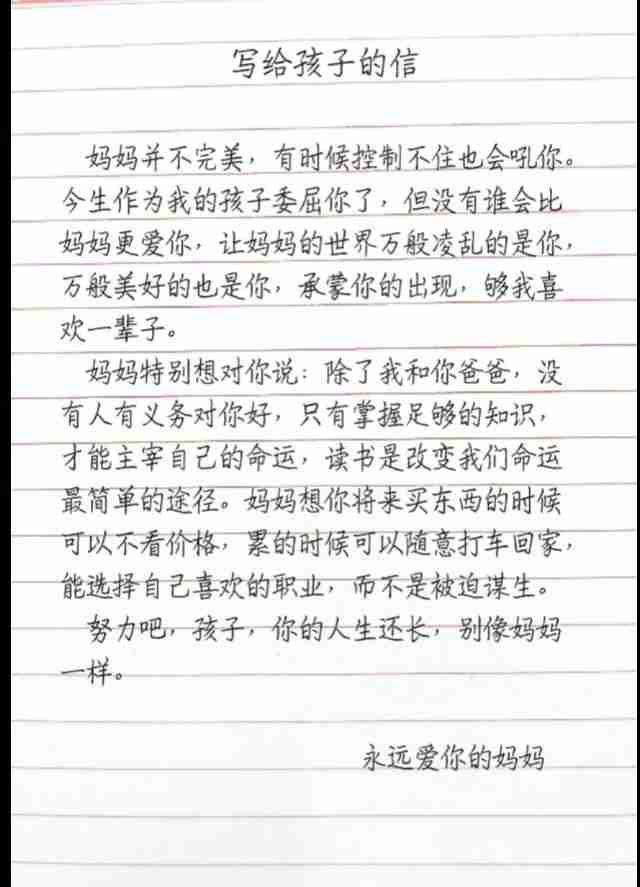 写给孩子的信
妈妈并不完美，有时候控制不住也会吼你。
今生作为我的孩子委屈你了，但没有谁会比
妈妈更爱你，让妈妈的世界万般凌乱的是你，
万般美好的也是你，承蒙你的出现，够我喜
欢一辈子。
妈妈特别想对你说：除了我和你爸爸，没
有人有义务对你好，只有掌握足够的知识，
才能主宰自己的命运，读书是改变我们命运
最简单的途径。妈妈想你将来买东西的时候
可以不看价格，累的时候可以随意打车回家，
能选择自己喜欢的职业，而不是被迫谋生。
努力吧，孩子，你的人生还长，别像妈妈
一样。
永远爱你的妈妈